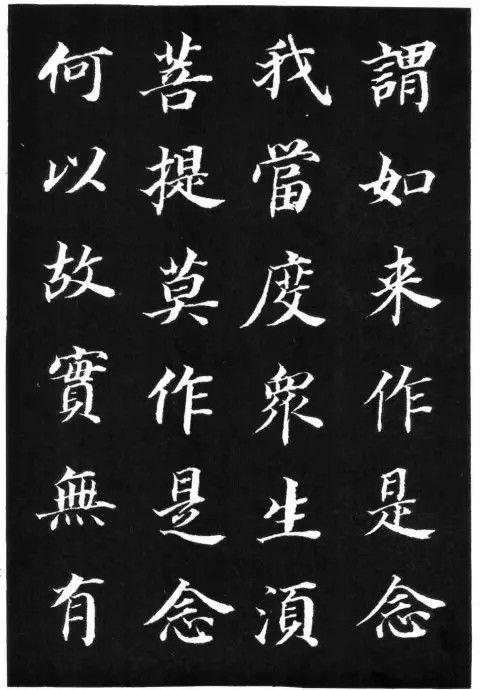 謂如来作是念
我當度眾生湏
菩提莫作是念
何以故實無有